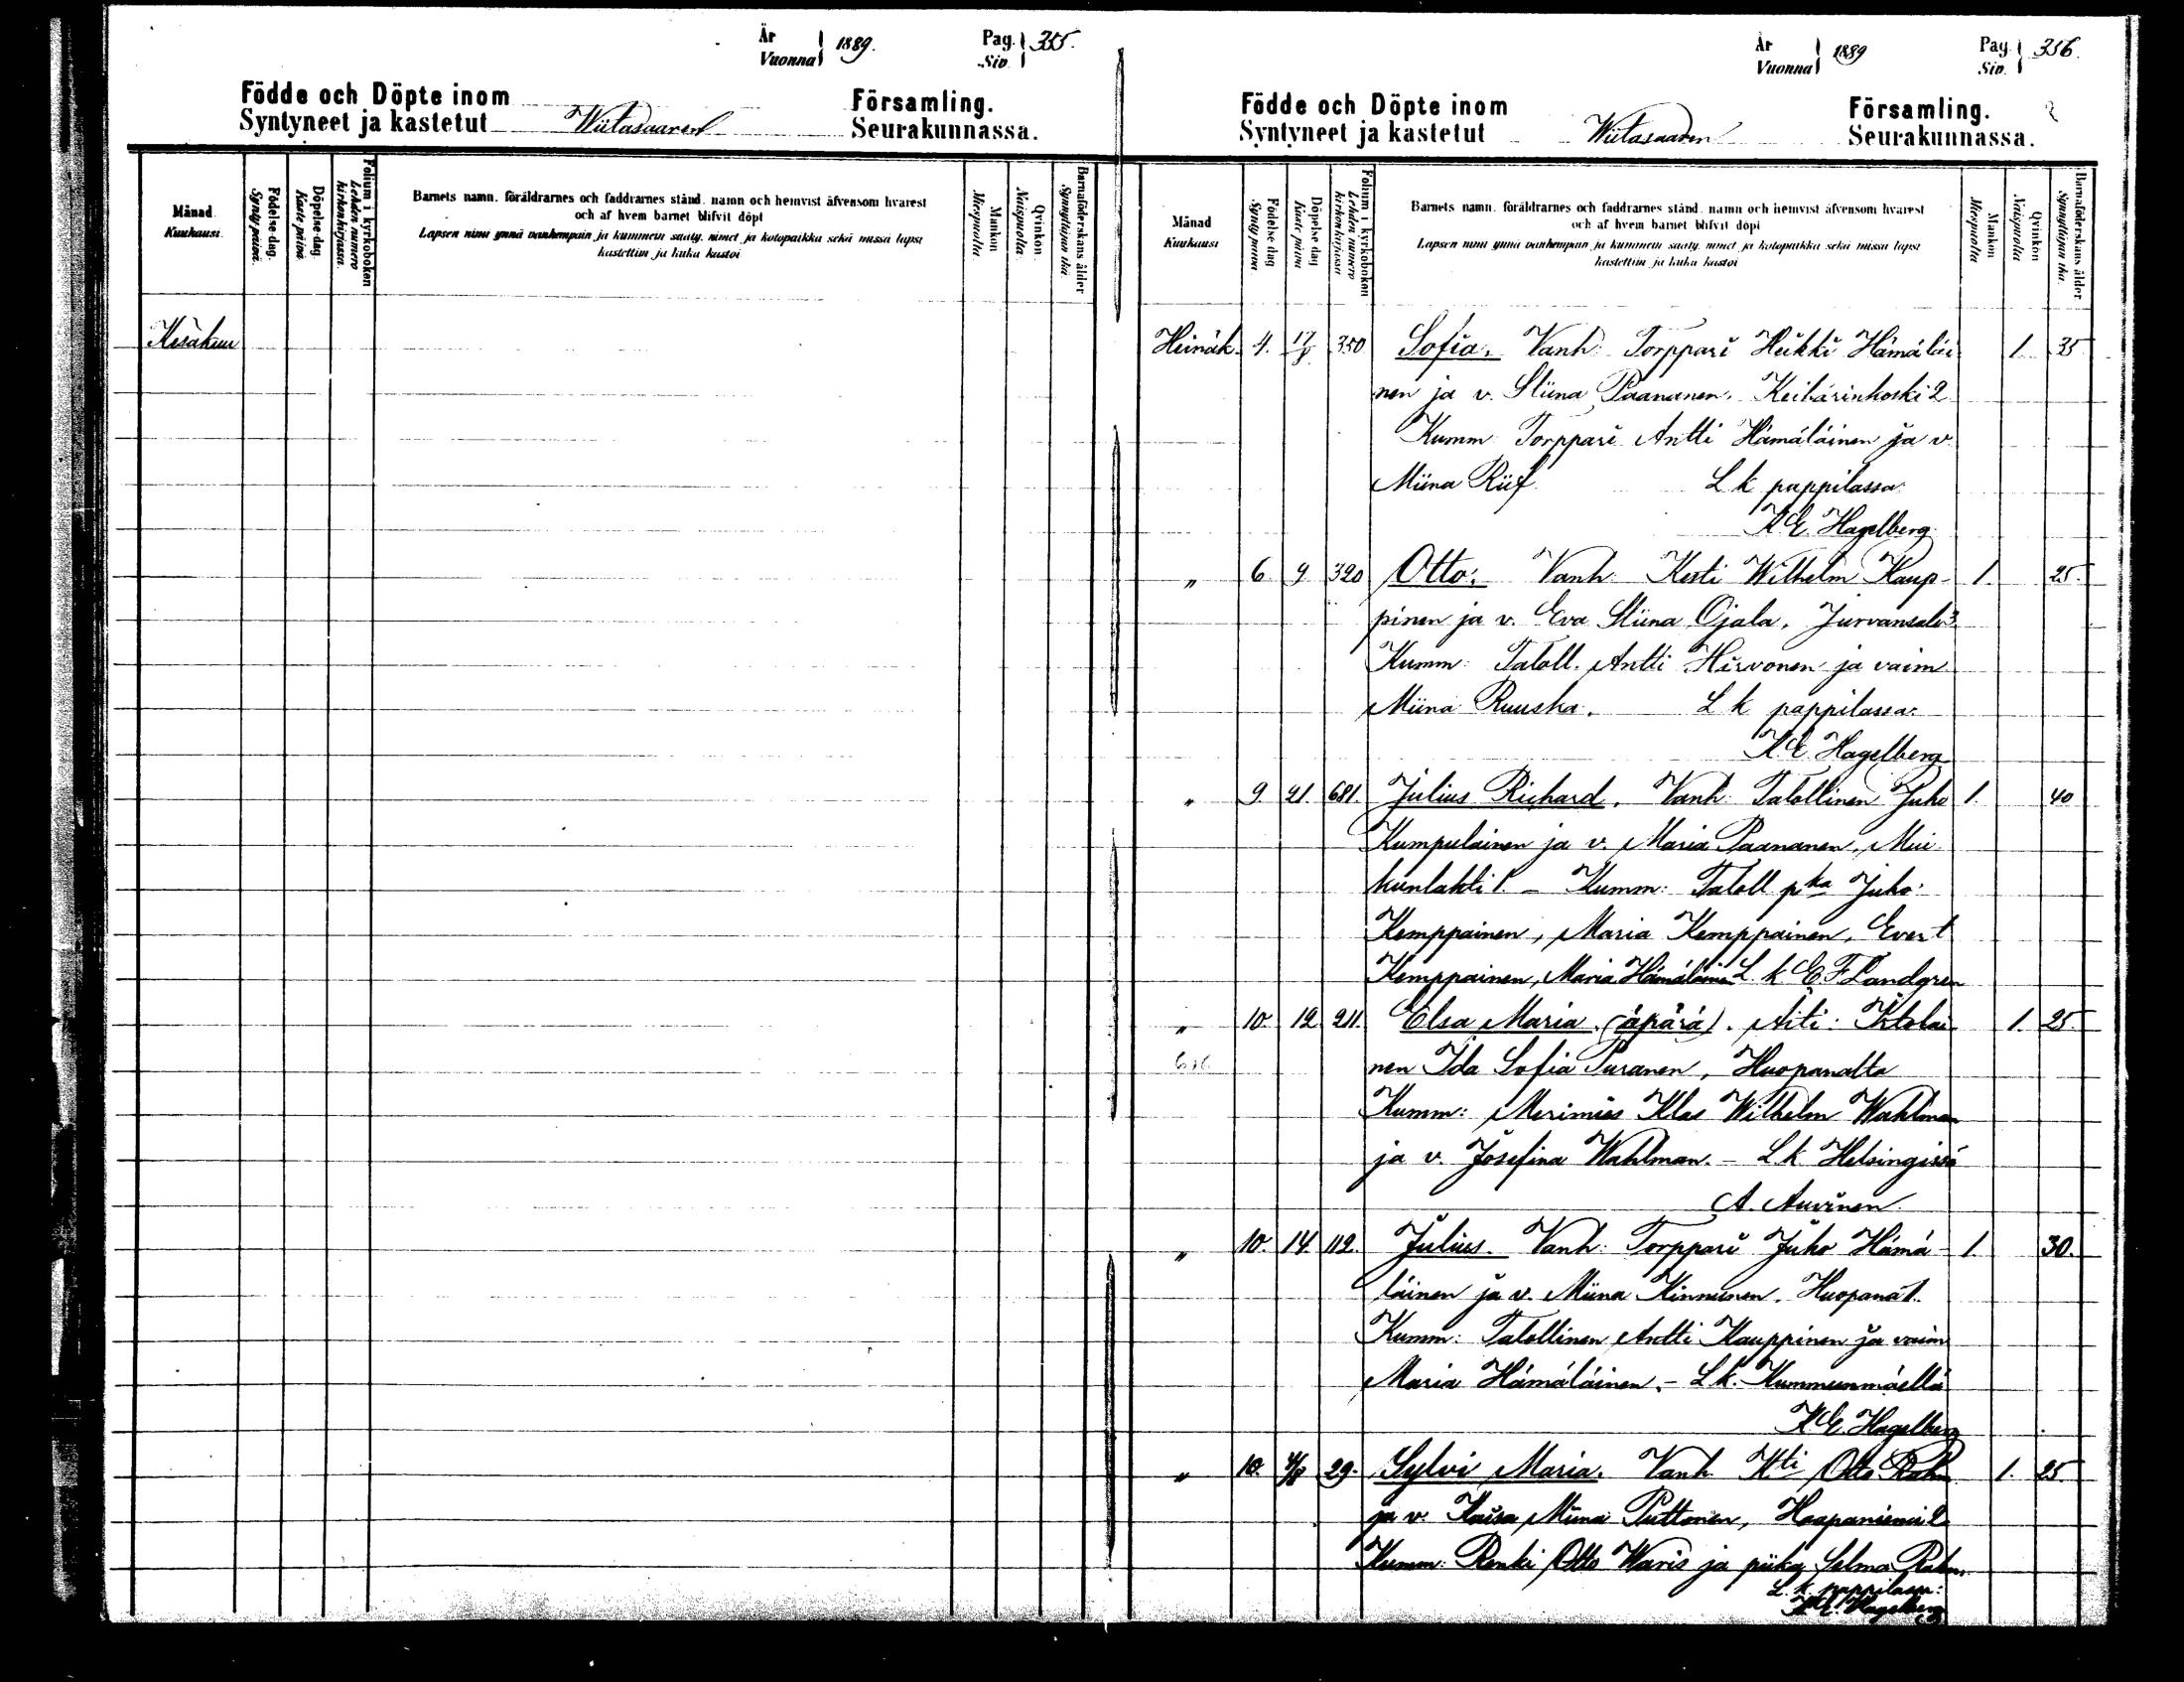 År
Vuonna
1889.
Pag.
Siv.
355.
Födde och Döpte inom
Syntyneet ja kastetut
Wiitasaaren
Församling.
Seurakunnassa.
Månad
Kuukausi
Födelse-dag.
Synty päivä.
Döpelse-dag
Kaste päivä
Folium i kyrkoboken
Lehden numero
kirkonkirjassa.
Barnets namn, föräldrarnes och faddrarnes stånd, namn och hemvist äfvensom hvarest
och af hvem barnet blifvit döpt
Lapsen nimi ynnä vanhempain ja kummein sääty, nimet ja kotopaikka sekä missä lapsi
kastettiin ja kuka kastoi
Mankön
Miespuolta
Qvinkön
Naispuolta
Barnaföderskans ålder
Synnyttäjän ikä.
Kesäkuu
År
Vuonna
1889
Pag.
Siv.
356.
Födde och Döpte inom
Syntyneet ja kastetut
Wiitasaaren
Församling.
Seurakunnassa.
Månad
Kuukausi
Födelse dag
Synty päivä
Döpelse dag
Kaste päivä
Folium i kyrkoboken
Lehden numero
kirkonkirjassa
Barnets namn, föräldrarnes och faddrarnes stånd, namn och hemvist äfvensom hvarest
och af hvem barnet blifvit döpt
Lapsen nimi ynnä vanhempain ja kummein sääty, nimet ja kotopaikka sekä missä lapsi
kastettiin ja kuka kastoi
Mankön
Miespuolta
Qvinkön
Naispuolta
Barnaföderskans ålder
Synnyttäjän ikä.
Heinäk. 4. 17/8 350 Sofia. Vanh: Torppari Heikki Hämäläi 1 35
nen ja v. Stiina Paananen. Keihärinkoski 2
Kumm: Torppari Antti Hämäläinen ja v.
Miina Riif L k pappilassa:
K E. Hagelberg
" 6 9 320 Otto. Vanh: Kesti Wilhelm Kaup- 1. 25.
pinen ja v. Eva Stiina Ojala. Jurvansalo 3
Kumm: Taloll. Antti Hirvonen ja vaim
Miina Ruuska. L k pappilassa:
K.E. Hagelberg
" 9. 21. 681. Julius Richard. Vanh: Talollinen Juho 1. 40
Kumpulainen ja v. Maria Paananen. Mui
kunlahti 1. – Kumm: Taloll pka Juho
Kemppainen, Maria Kemppainen, Evert
Kemppainen, Maria Hämäläinen L. k E. F Landgren
" 10. 12 211. Elsa Maria. (äpärä). Äiti: Itslai 1. 25.
nen Ida Sofia Puranen, Huopanalta
Kumm: Merimies Klas Wilhelm Wahlman
ja v. Josefina Wahlman. – L.k Helsingissä
A. Auvinen
" 10. 14. 112. Julius. Vanh: Torppari Juho Hämä- 1. 30.
läinen ja v. Miina Kinnunen. Huopana 1.
Kumm: Talollinen Antti Kauppinen ja vaim
Maria Hämäläinen. – L k. Kummunmäellä
K E. Hagelberg
" 10. 4/8 29. Sylvi Maria. Vanh Kti Otto Rahm 1. 25.
ja v. Kaisa Miina Puttonen, Haapaniemi 2
Kumm: Renki Otto Waris ja piika Selma Rahm
L. k. pappilassa:
K E. Hagelberg